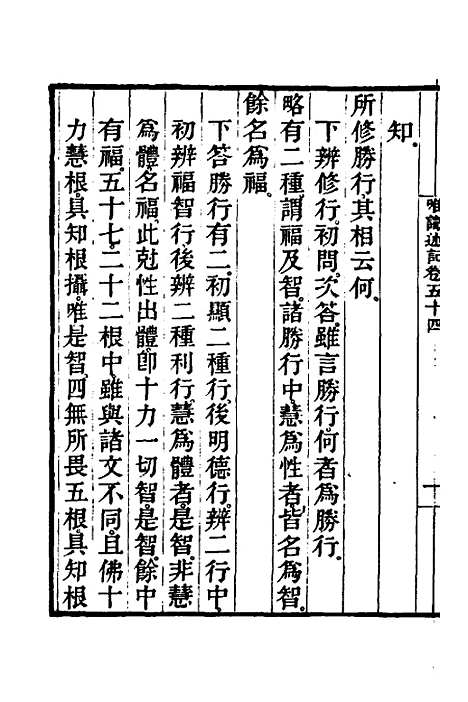 唯識述記卷五十四
十
知。
所修勝行。其相云何。
下辨修行。初問。次答。雖言勝行。何者為勝行。
略有二種。謂福及智。諸勝行中。慧為性者。皆名為智。
餘名為福。
下答勝行有二。初顯二種行。後明德行。辨二行中。
初辨福智行。後辨二種利行。慧為體者是智。非慧
為體名福。此尅性出體。卽十力一切智是智。餘中
有福。五十七。二十二根中。雖與諸文不同。且佛十
力慧根。具知根攝。唯是智。四無所畏五根。具知根